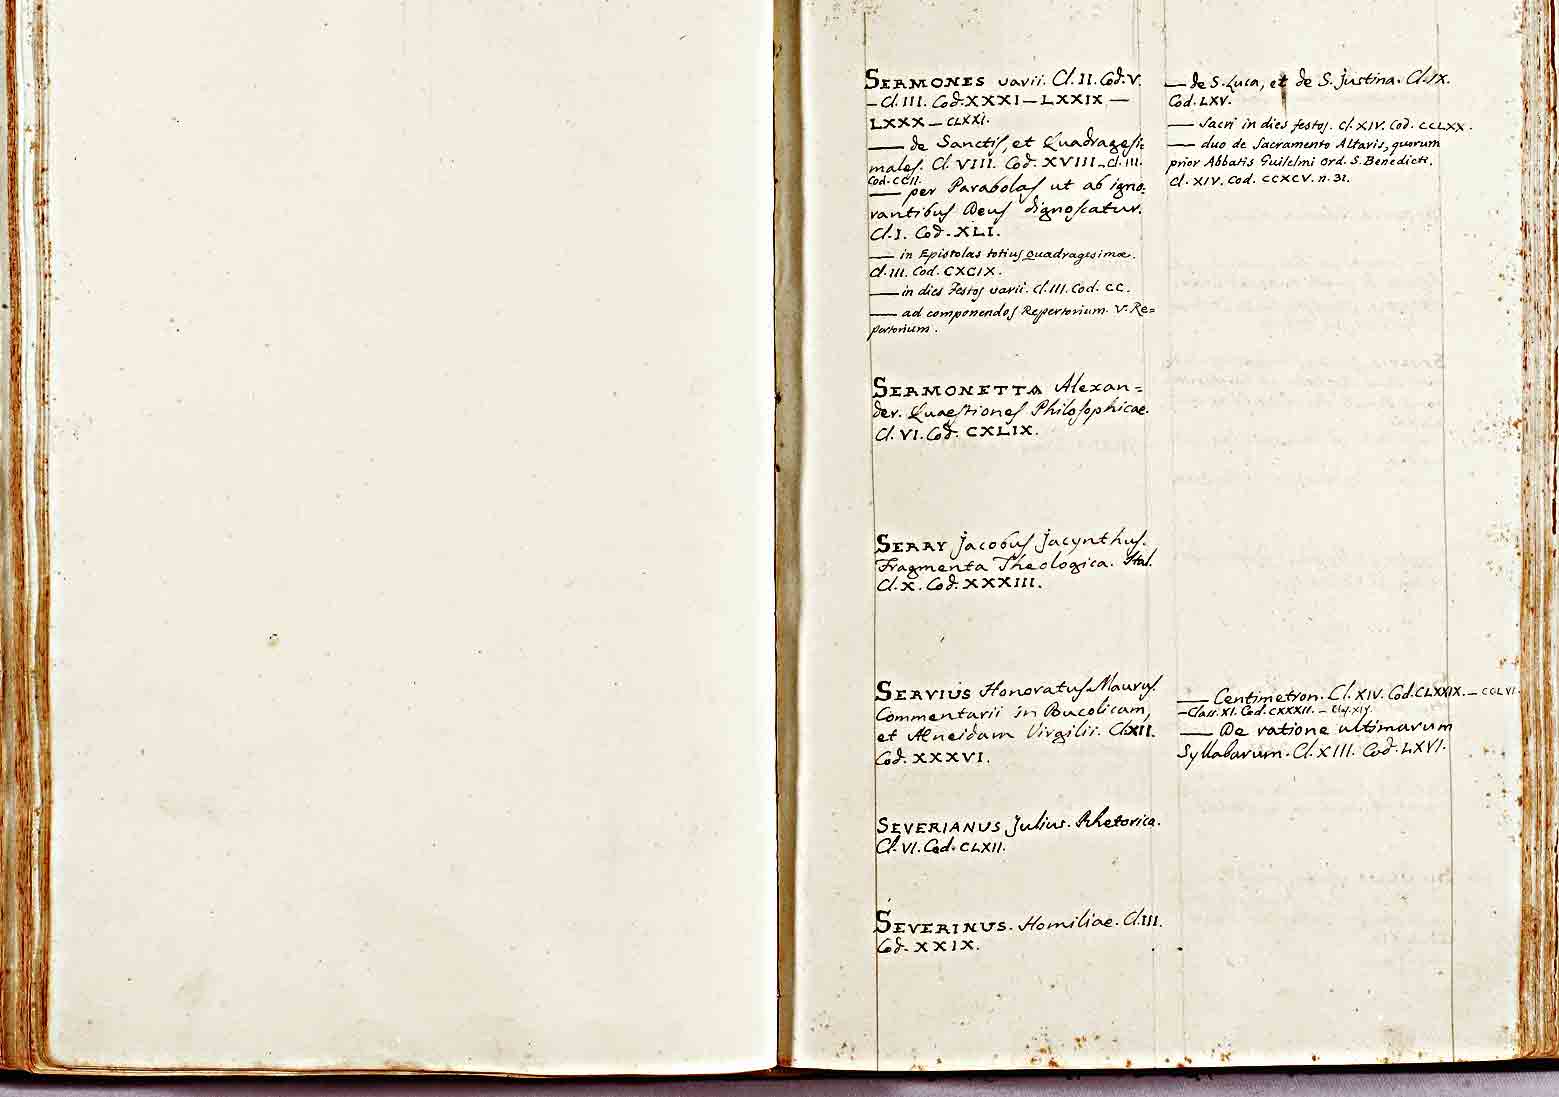 SERMONES varii. Cl. II. Cod. V.
– Cl. III. Cod. XXXI – LXXIX –
LXXX – CLXXI.
— de Sanctis, et Quadragesi-
males. Cl. VIII. Cod. XVIII – Cl. III.
Cod. CCII.
— per Parabolas ut ab igno-
rantibus Deus dignoscatur.
Cl. I. Cod. XLI.
— in Epistolas totius Quadragesimæ.
Cl. III. Cod. CXCIX.
— in dies Festos varii. Cl. III. Cod. CC.
— ad componendos Repertorium. V. Re=
pertorium.
SERMONETTA Alexan=
der. Quaestiones Philosophicae.
Cl. VI. Cod. CXLIX.
SERRY Jacobus Jacynthus.
Fragmenta Theologica. Ital.
Cl. X. Cod. XXXIII.
SERVIUS Honoratus Maurus.
Commentarii in Bucolicam,
et Æneidam Virgilii. Cl. XII.
Cod. XXXVI.
SEVERIANUS Julius. Rhetorica.
Cl. VI. Cod. CLXII.
SEVERINUS. Homiliae. Cl. III.
Cod. XXIX.
— de S. Luca, et de S. Justina. Cl. IX.
Cod. LXV.
— Sacri in dies festos. Cl. XIV. Cod. CCLXX.
— duo de Sacramento Altaris, quorum
prior Abbatis Guilelmi Ord. S. Benedicti.
Cl. XIV. Cod. CCXCV. n. 31.
— Centimetron. Cl. XIV. Cod. CLXXIX. – CCLVI.
– Class. XI. Cod. CXXXII. –
— De ratione ultimarum
Syllabarum. Cl. XIII. Cod. LXVI.